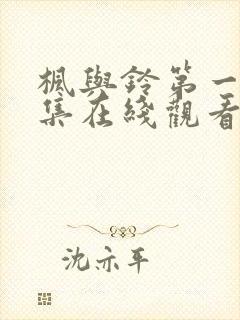 楓與鈴第一
集在綫觀看
沈亦平